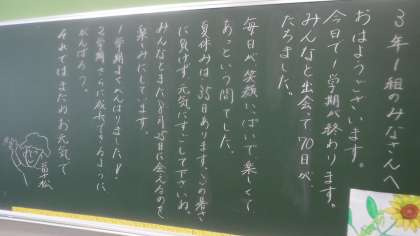 3年1組のみなさんへ
おはようございます。
今日で1学期が終わります。
みんなと出会って70日が
たちました。
毎日が笑顔いっぱいで楽しくて
あっという間でした。
夏休みは35日あります。この暑さ
に負けず元気にすごして下さいね。
みんなとまた8月25日に会えるのを
楽しみにしています。
1学期よくがんばりました!
2学期さらに成長できるように
がんばろう。
それではまたねお元気で